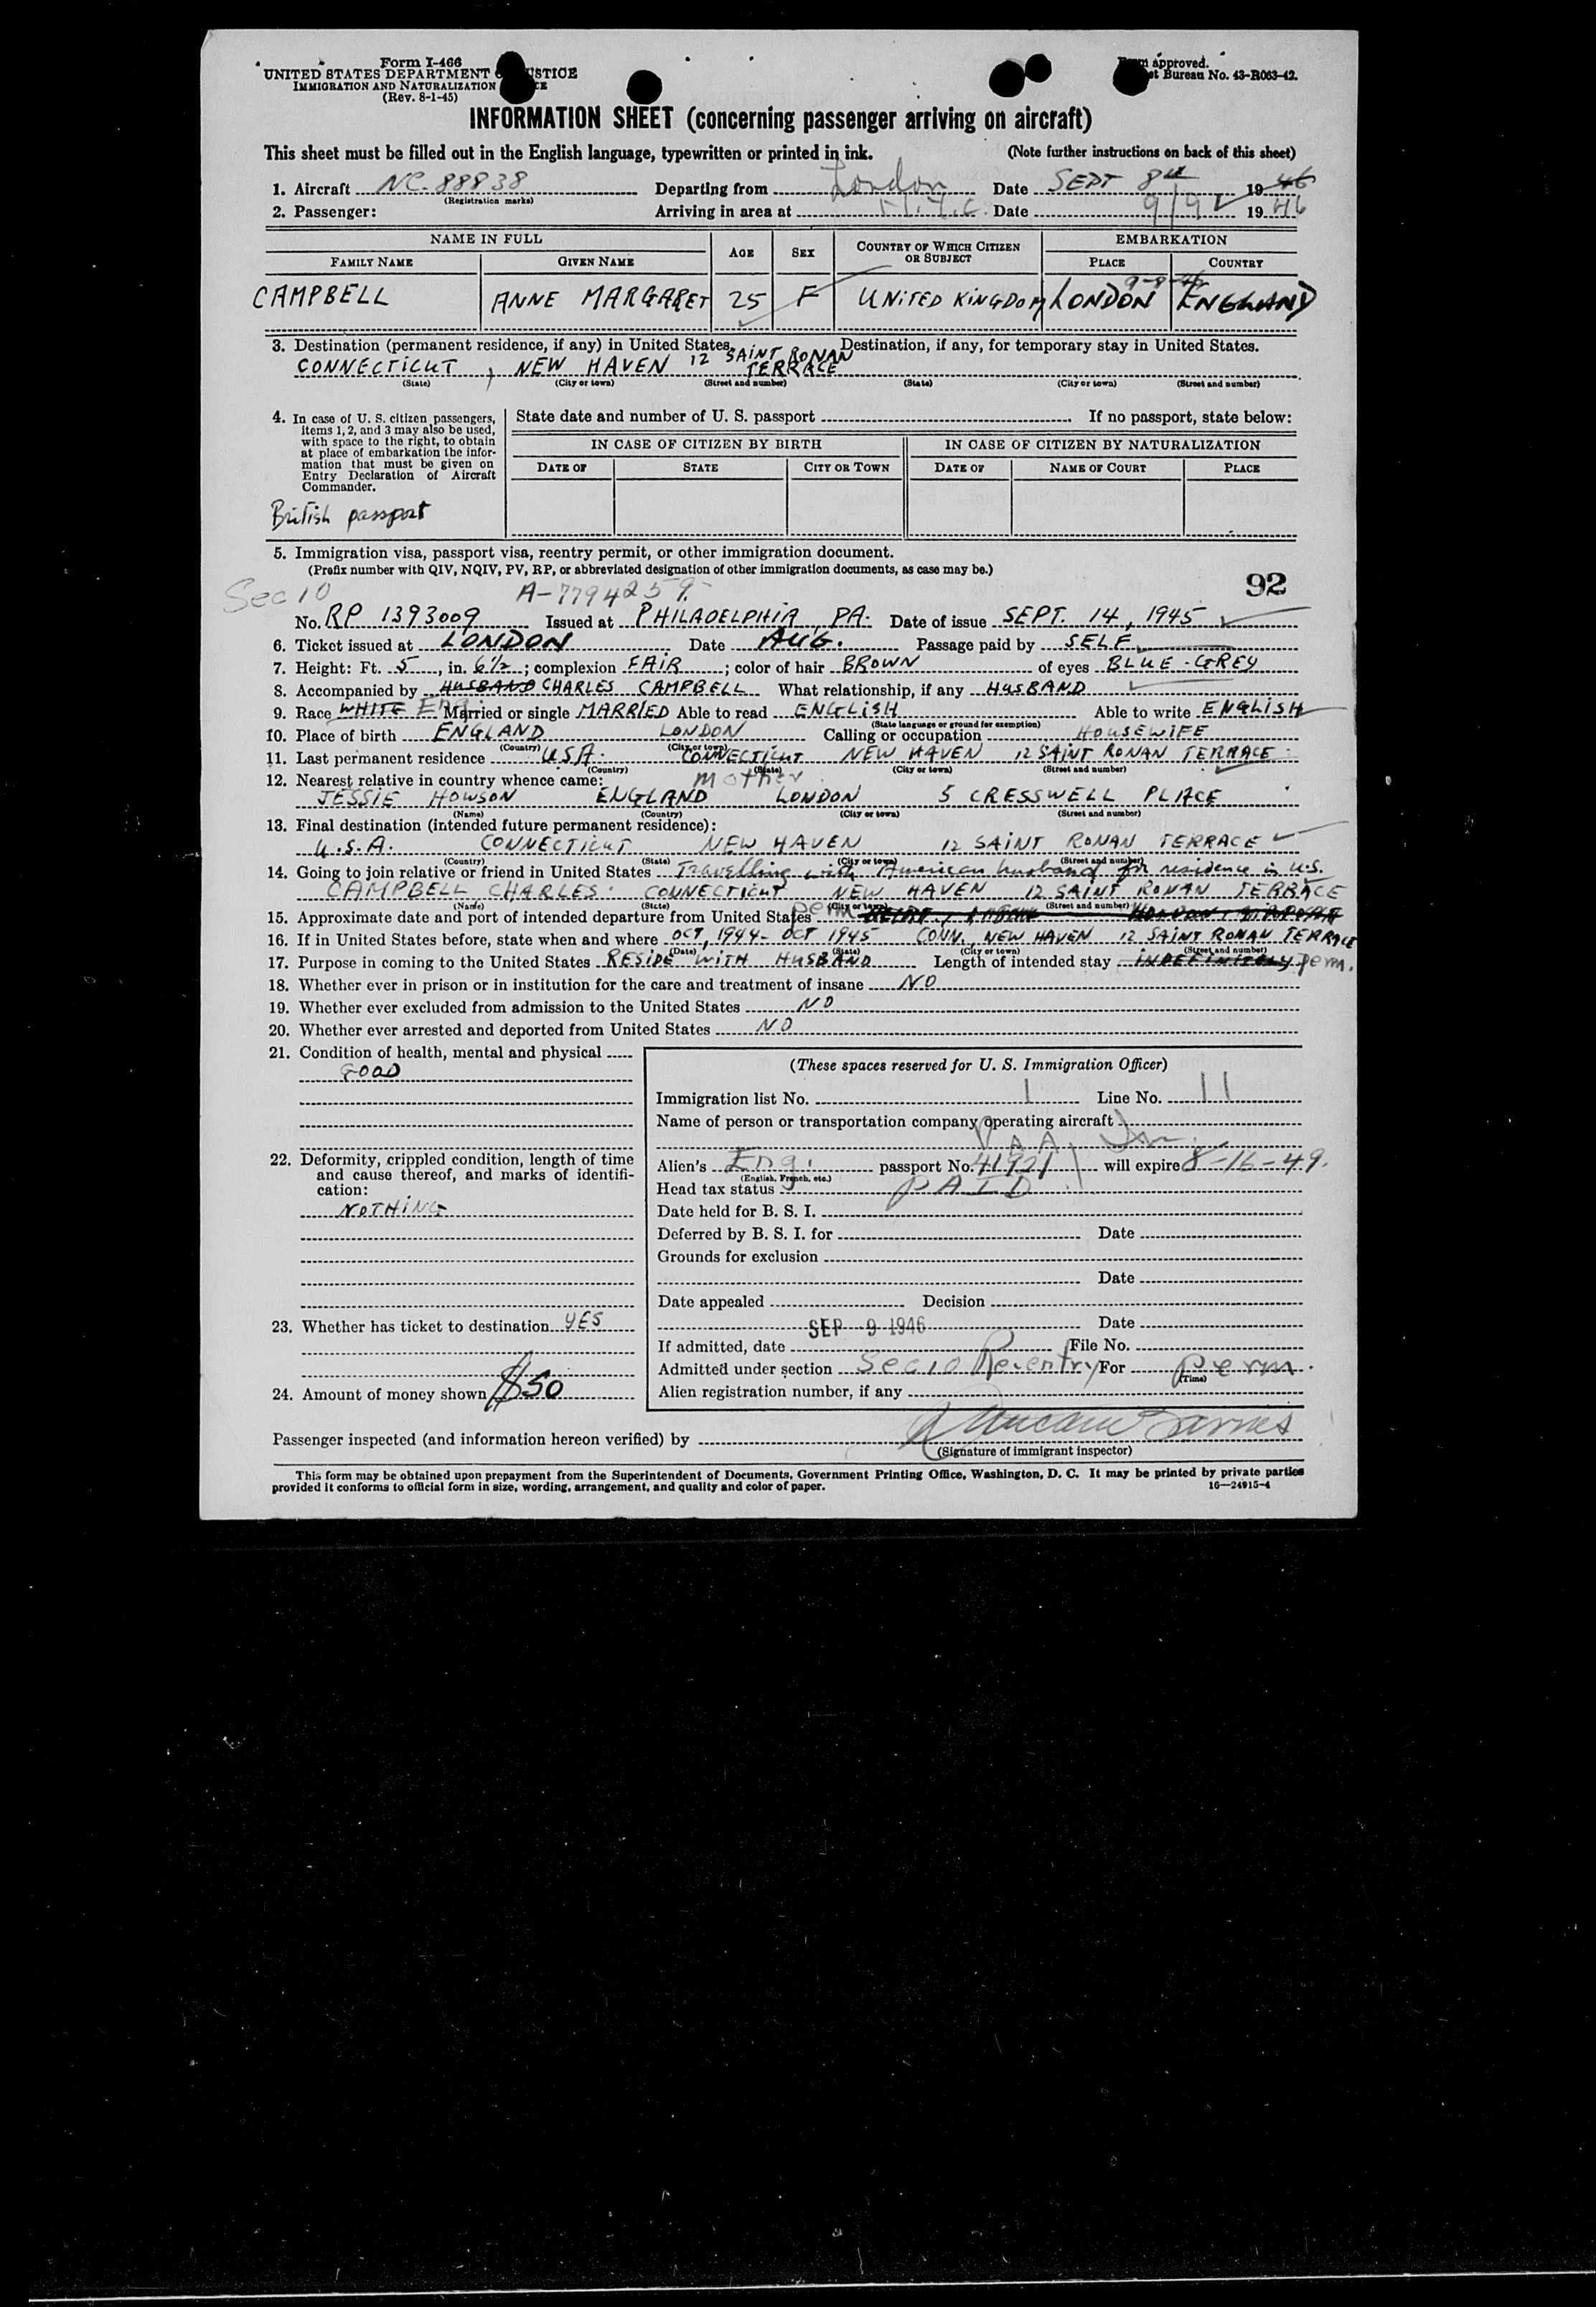 Form I-466
UNITED STATES DEPARTMENT
IMMIGRATION AND NATURALIZATION
(Rev. 8-1-45)
approved.
Bureau No. 43-R063-42.
INFORMATION SHEET (concerning passenger arriving on aircraft)
This sheet must be filled out in the English language, typewritten or printed in ink. (Note further instructions on back of this sheet)
1. Aircraft NC-88838 Departing from London Date SEPT 8th 1946
(Registration marks)
2. Passenger: Arriving in area at N.Y.C. Date 9/9 1946
NAME IN FULL AGE SEX COUNTRY OF WHICH CITIZEN OR SUBJECT EMBARKATION
FAMILY NAME GIVEN NAME PLACE COUNTRY
9-8-46
CAMPBELL ANNE MARGARET 25 F UNITED KINGDOM LONDON ENGLAND
3. Destination (permanent residence, if any) in United States. Destination, if any, for temporary stay in United States.
CONNECTICUT, NEW HAVEN 12 SAINT RONAN TERRACE
(State) (City or town) (Street and number) (State) (City or town) (Street and number)
4. In case of U. S. citizen passengers, items 1, 2, and 3 may also be used, with space to the right, to obtain at place of embarkation the information that must be given on Entry Declaration of Aircraft Commander.
State date and number of U. S. passport If no passport, state below:
IN CASE OF CITIZEN BY BIRTH IN CASE OF CITIZEN BY NATURALIZATION
DATE OF STATE CITY OR TOWN DATE OF NAME OF COURT PLACE
British passport
5. Immigration visa, passport visa, reentry permit, or other immigration document.
(Prefix number with QIV, NQIV, PV, RP, or abbreviated designation of other immigration documents, as case may be.)
92
Sec 10 A-7794259
No. RP 1393009 Issued at PHILADELPHIA PA. Date of issue SEPT. 14, 1945
6. Ticket issued at LONDON Date AUG. Passage paid by SELF
7. Height: Ft. 5, in. 6½; complexion FAIR; color of hair BROWN of eyes BLUE-GREY
8. Accompanied by HUSBAND CHARLES CAMPBELL What relationship, if any HUSBAND
9. Race WHITE Eng Married or single MARRIED Able to read ENGLISH Able to write ENGLISH
(State language or ground for exemption)
10. Place of birth ENGLAND LONDON Calling or occupation HOUSEWIFE
(Country) (City or town)
11. Last permanent residence U.S.A. CONNECTICUT NEW HAVEN 12 SAINT RONAN TERRACE
(Country) (State) (City or town) (Street and number)
12. Nearest relative in country whence came: Mother
JESSIE HOWSON ENGLAND LONDON 5 CRESSWELL PLACE
(Name) (Country) (City or town) (Street and number)
13. Final destination (intended future permanent residence):
U.S.A. CONNECTICUT NEW HAVEN 12 SAINT RONAN TERRACE
(Country) (State) (City or town) (Street and number)
14. Going to join relative or friend in United States Travelling with American husband for residence in U.S.
CAMPBELL CHARLES. CONNECTICUT NEW HAVEN 12 SAINT RONAN TERRACE
(Name) (State) (City or town) (Street and number)
15. Approximate date and port of intended departure from United States perm
16. If in United States before, state when and where OCT, 1944 - OCT 1945 CONN., NEW HAVEN 12 SAINT RONAN TERRACE
(Date) (State) (City or town) (Street and number)
17. Purpose in coming to the United States RESIDE WITH HUSBAND Length of intended stay INDEFINITELY perm.
18. Whether ever in prison or in institution for the care and treatment of insane NO
19. Whether ever excluded from admission to the United States NO
20. Whether ever arrested and deported from United States NO
21. Condition of health, mental and physical
GOOD
22. Deformity, crippled condition, length of time and cause thereof, and marks of identification:
NOTHING
23. Whether has ticket to destination YES
24. Amount of money shown $50
(These spaces reserved for U. S. Immigration Officer)
Immigration list No. 1 Line No. 11
Name of person or transportation company operating aircraft
P A A
Alien's Eng. passport No. 41921 will expire 8-16-49.
(English, French, etc.)
Head tax status PAID
Date held for B. S. I.
Deferred by B. S. I. for Date
Grounds for exclusion
Date
Date appealed Decision
SEP 9 1946 Date
If admitted, date File No.
Admitted under section Sec 10 Reentry For perm.
(Time)
Alien registration number, if any
Passenger inspected (and information hereon verified) by
(Signature of immigrant inspector)
This form may be obtained upon prepayment from the Superintendent of Documents, Government Printing Office, Washington, D. C. It may be printed by private parties
provided it conforms to official form in size, wording, arrangement, and quality and color of paper. 16—24915-4